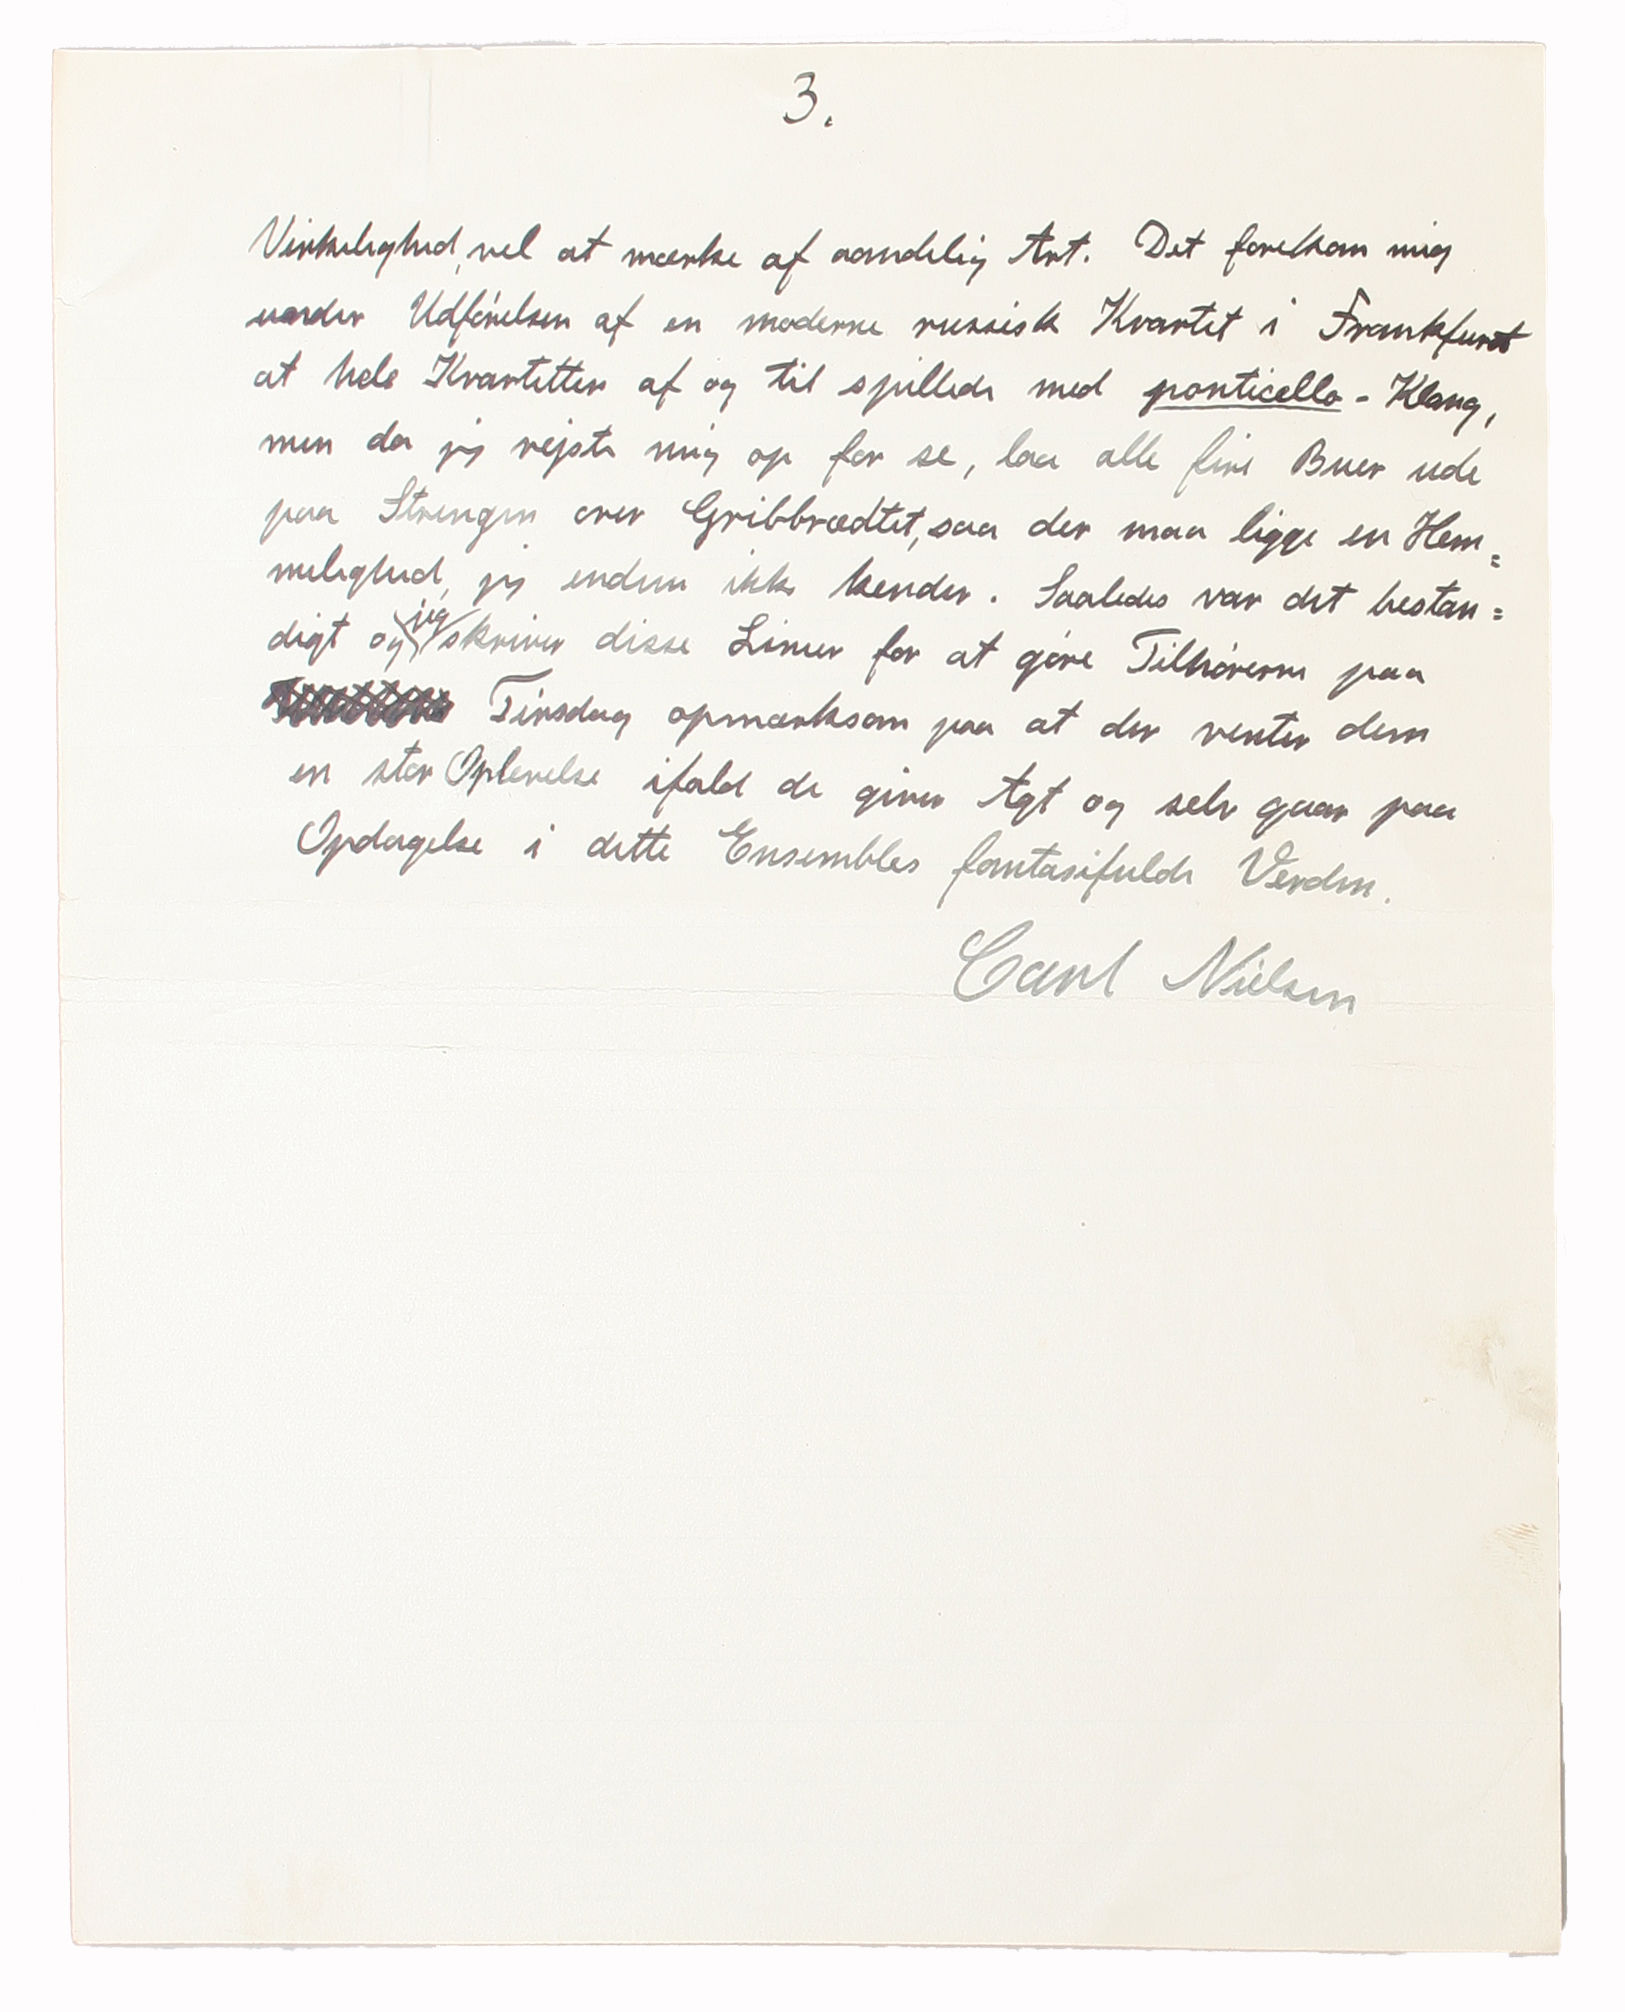 3.
Virkelighed, vel at mærke af aandelig Art. Det forekom mig
under Udførelsen af en moderne russisk Kvartet i Frankfurt
at hele Kvartetten af og til spillede med ponticello - Klang,
men da jeg rejste mig op for se, laa alle fire Buer ude
paa Strengen over Gribbrædtet, saa der maa ligge en Hem=
melighed, jeg endnu ikke kender. Saaledes var det bestan=
digt og jeg skriver disse Linier for at gøre Tilhørerne paa
Tirsdag opmærksom paa at der venter dem
en stor Oplevelse ifald de giver Agt og selv gaar paa
Opdagelse i dette Ensembles fantasifulde Verden.
Carl Nielsen